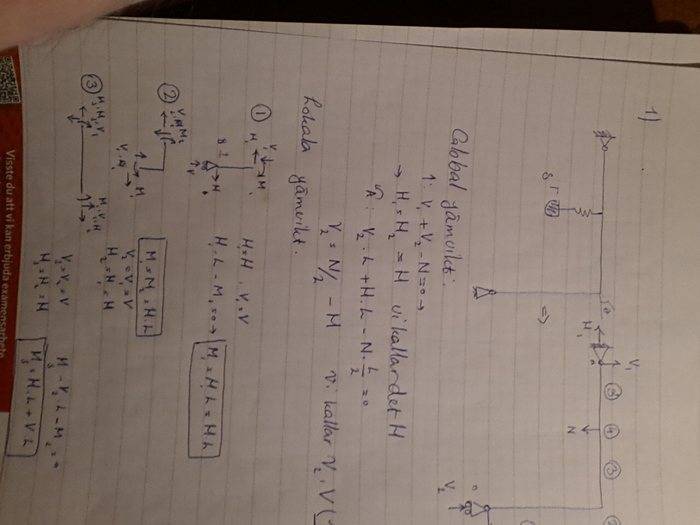 1)
δ
⇒
H₁
V₁
③ ④ ③
N
V₂
Global jämvikt:
↑: V₁ + V₂ - N = 0 →
→ H₁ = H₂ = H vi kallar det H
A: V₂ · L + H · L - N · L/2 = 0
V₂ = N/2 - H vi kallar V₂ = V
Lokala jämvikt.
①
H₁ = H , V₁ = V
H₁ · L - M₁ = 0 → M₁ = H₁ L = H L
②
M₁ = M₂ = H L
V₂ = V₁ = V
H₂ = H₁ = H
③
V₃ = V₂ = V
H₃ = H₂ = H
M₃ - V₂ · L - M₂ = 0
M₃ = H · L + V · L
Visste du att vi kan erbjuda examensarbete